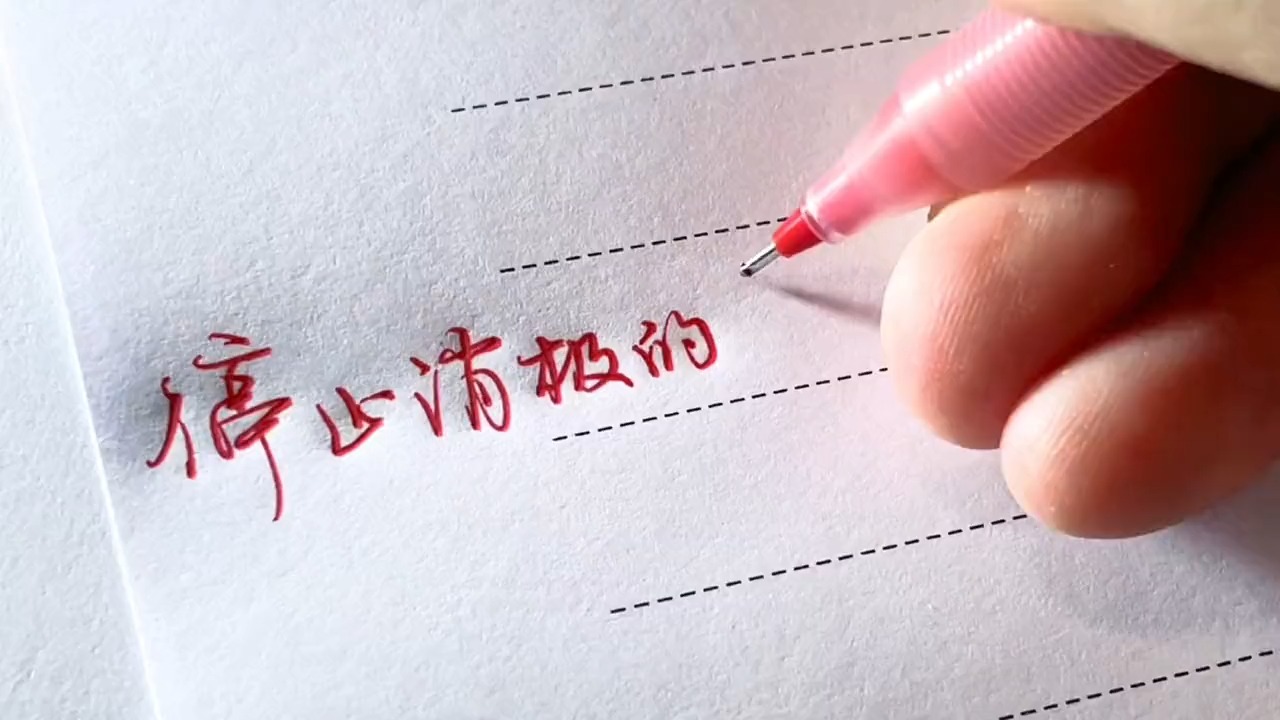 停止消极的